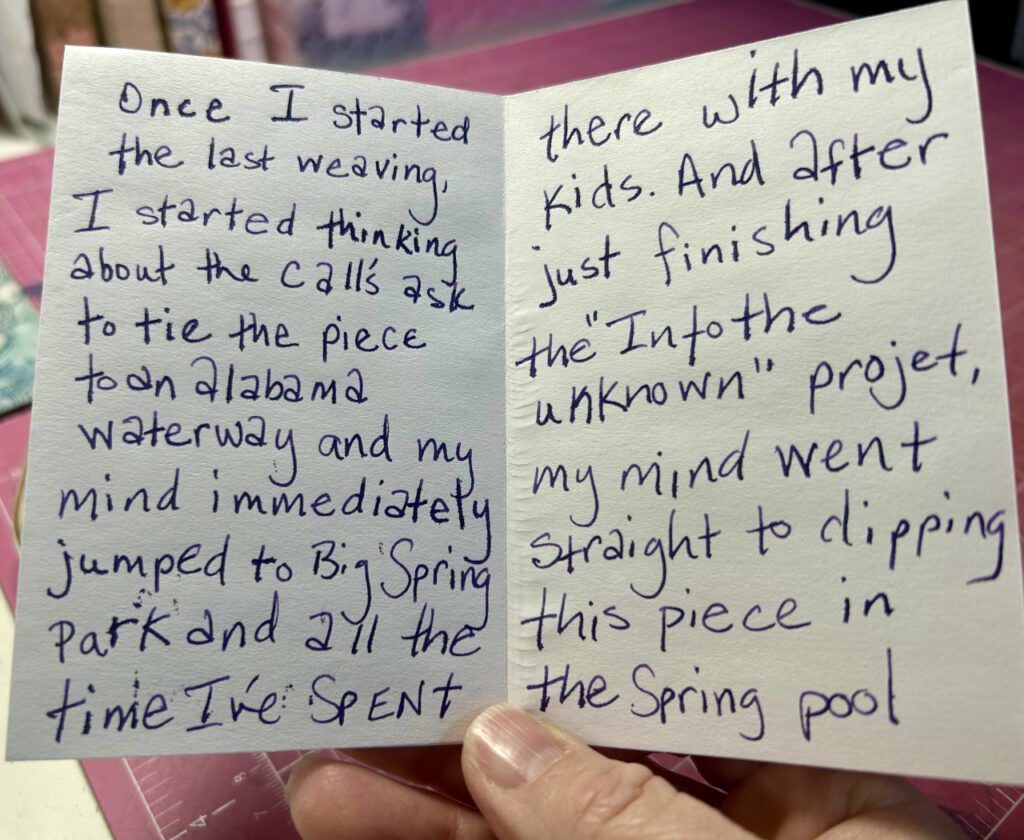 Once I started
the last weaving,
I started thinking
about the call's ask
to tie the piece
to an alabama
waterway and my
mind immediately
jumped to Big Spring
Park and all the
time I've SPENT
there with my
kids. And after
just finishing
the "Into the
unknown" projet,
my mind went
straight to dipping
this piece in
the Spring pool